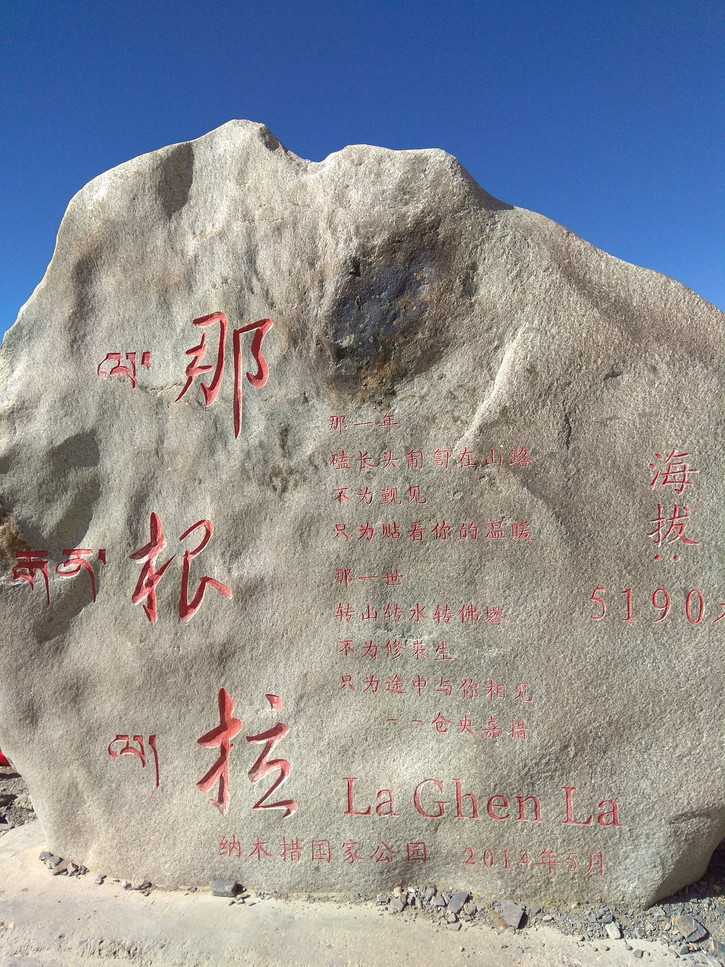 ལ་
那
རྒན་
根
ལ
拉
那一年
磕长头匍匐在山路
不为觐见
只为贴着你的温暖
那一世
转山转水转佛塔
不为修来生
只为途中与你相见
——仓央嘉措
海拔:
5190
La Ghen La
纳木措国家公园 2014年5月